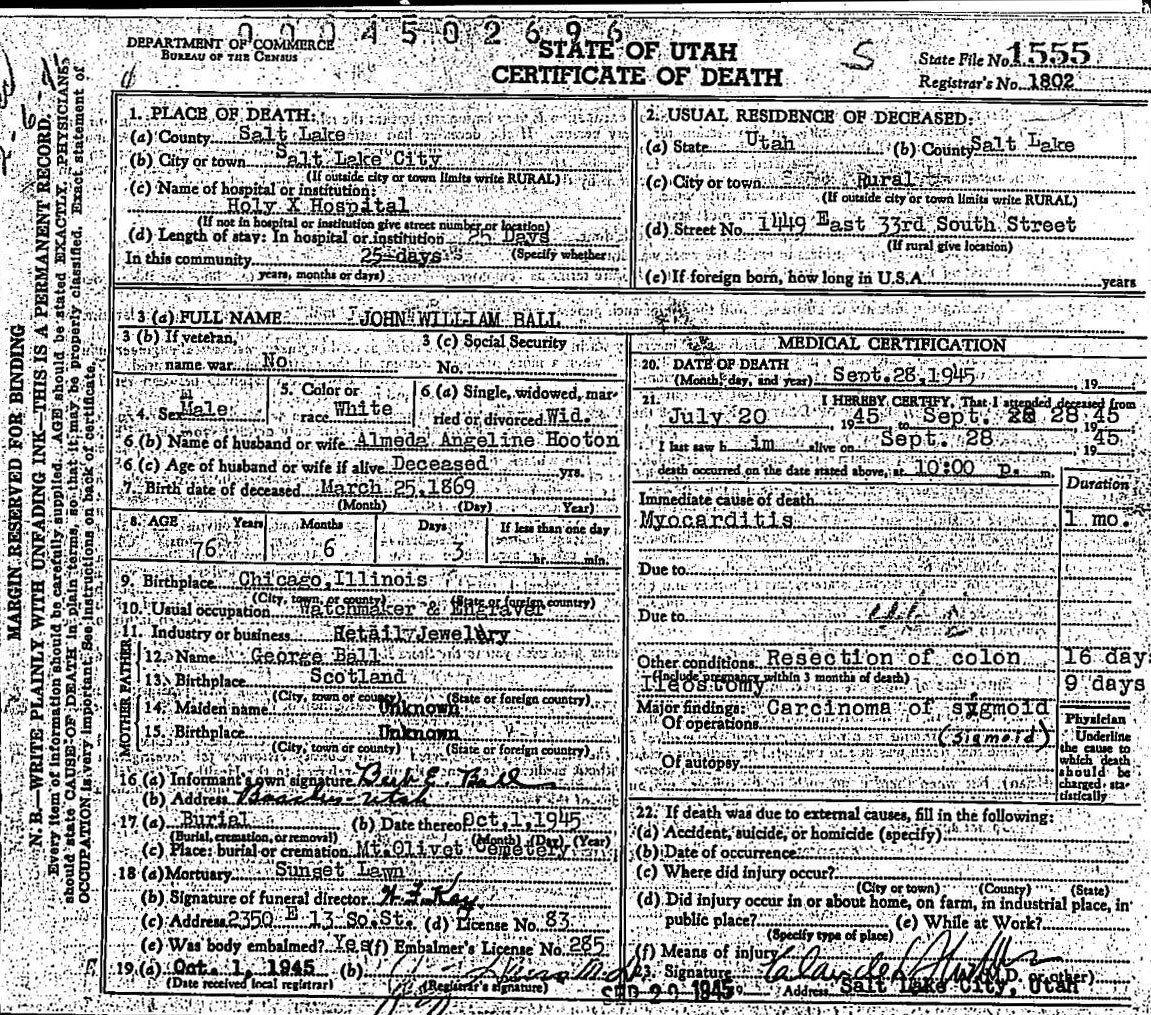 0004502696
DEPARTMENT OF COMMERCE
BUREAU OF THE CENSUS
STATE OF UTAH
CERTIFICATE OF DEATH
S
State File No. 1555
Registrar's No. 1802
MARGIN RESERVED FOR BINDING
N. B.—WRITE PLAINLY WITH UNFADING INK—THIS IS A PERMANENT RECORD.
Every item of information should be carefully supplied. AGE should be stated EXACTLY. PHYSICIANS
should state CAUSE OF DEATH in plain terms, so that it may be properly classified. Exact statement of
OCCUPATION is very important. See instructions on back of certificate.
1. PLACE OF DEATH:
(a) County Salt Lake
(b) City or town Salt Lake City
(If outside city or town limits write RURAL)
(c) Name of hospital or institution:
Holy X Hospital
(If not in hospital or institution give street number or location)
(d) Length of stay: In hospital or institution 25 Days
(Specify whether
In this community 25 days
years, months or days)
2. USUAL RESIDENCE OF DECEASED:
(a) State Utah (b) County Salt Lake
(c) City or town Rural
(If outside city or town limits write RURAL)
(d) Street No. 1449 East 33rd South Street
(If rural give location)
(e) If foreign born, how long in U.S.A. years
3 (a) FULL NAME JOHN WILLIAM BALL
3 (b) If veteran, name war No
3 (c) Social Security No.
4. Sex Male
5. Color or race White
6 (a) Single, widowed, married or divorced Wid.
6 (b) Name of husband or wife Almeda Angeline Hooton
6 (c) Age of husband or wife if alive Deceased yrs.
7. Birth date of deceased March 25, 1869
(Month) (Day) (Year)
8. AGE Years Months Days If less than one day
76 6 3 hr. min.
9. Birthplace Chicago, Illinois
(City, town, or county) (State or foreign country)
10. Usual occupation Watchmaker & Engraver
11. Industry or business Retail Jewelery
FATHER
12. Name George Ball
13. Birthplace Scotland
(City, town or county) (State or foreign country)
MOTHER
14. Maiden name Unknown
15. Birthplace Unknown
(City, town or county) (State or foreign country)
16 (a) Informant's own signature E. Ball
(b) Address Utah
17 (a) Burial (b) Date thereof Oct, 1, 1945
(Burial, cremation, or removal) (Month) (Day) (Year)
(c) Place: burial or cremation Mt. Olivet Cemetery
18 (a) Mortuary Sunset Lawn
(b) Signature of funeral director
(c) Address 2350 E 13 So. St. (d) License No. 83
(e) Was body embalmed? Yes (f) Embalmer's License No. 285
19 (a) Oct. 1, 1945 (b)
(Date received local registrar) (Registrar's signature)
MEDICAL CERTIFICATION
20. DATE OF DEATH
(Month, day, and year) Sept. 28, 1945 19
21. I HEREBY CERTIFY, That I attended deceased from
July 20 1945 to Sept. 28 1945
I last saw him alive on Sept. 28 1945
death occurred on the date stated above, at 10:00 p. m.
Duration
Immediate cause of death
Myocarditis 1 mo.
Due to
Due to
Other conditions Resection of colon 16 days
(Include pregnancy within 3 months of death)
Ileostomy 9 days
Major findings: Carcinoma of sigmoid
Of operations (sigmoid)
Of autopsy
Physician
Underline the cause to which death should be charged statistically
22. If death was due to external causes, fill in the following:
(a) Accident, suicide, or homicide (specify)
(b) Date of occurrence
(c) Where did injury occur?
(City or town) (County) (State)
(d) Did injury occur in or about home, on farm, in industrial place, in
public place? (e) While at Work?
(Specify type of place)
(f) Means of injury
23. Signature (M.D. or other)
1945 Address Salt Lake City, Utah